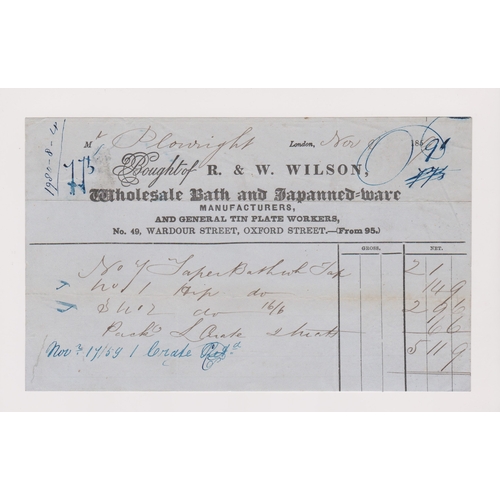 1980-8-4
Mr Plowright London, Nov 185
Bought of R. & W. WILSON,
Wholesale Bath and Japanned-ware
MANUFACTURERS,
AND GENERAL TIN PLATE WORKERS,
No. 49, WARDOUR STREET, OXFORD STREET.—(From 95.)
GROSS. NET.
No 7 Taper Bath wh Tap 2 1
No 1 Hip do 14 9
2 No 2 do 16/6
Pack 2 Mats 6 6
5 11 9
Novr 17/59 1 Crate